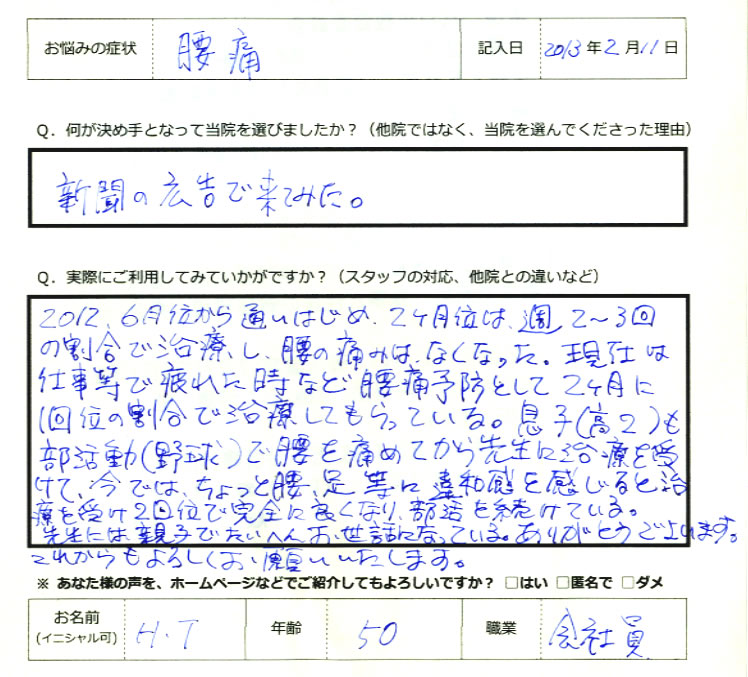 お悩みの症状 腰痛 記入日 2013年2月11日
Q．何が決め手となって当院を選びましたか？（他院ではなく、当院を選んでくださった理由）
新聞の広告で来てみた。
Q．実際にご利用してみていかがですか？（スタッフの対応、他院との違いなど）
2012、6月位から通いはじめ、2ヶ月位は、週2〜3回
の割合で治療し、腰の痛みは、なくなった。現在は
仕事等で疲れた時など腰痛予防として2ヶ月に
1回位の割合で治療してもらっている。息子(高2)も
部活動(野球)で腰を痛めてから先生に治療を受
けて、今では、ちょっと腰、足等に違和感を感じると治
療を受け2回位で完全に良くなり、部活を続けている。
先生には親子でたいへんお世話になっている。ありがとうございます。
これからもよろしくお願いいたします。
※ あなた様の声を、ホームページなどでご紹介してもよろしいですか？ □はい □匿名で □ダメ
お名前 H.T 年齢 50 職業 会社員
(イニシャル可)